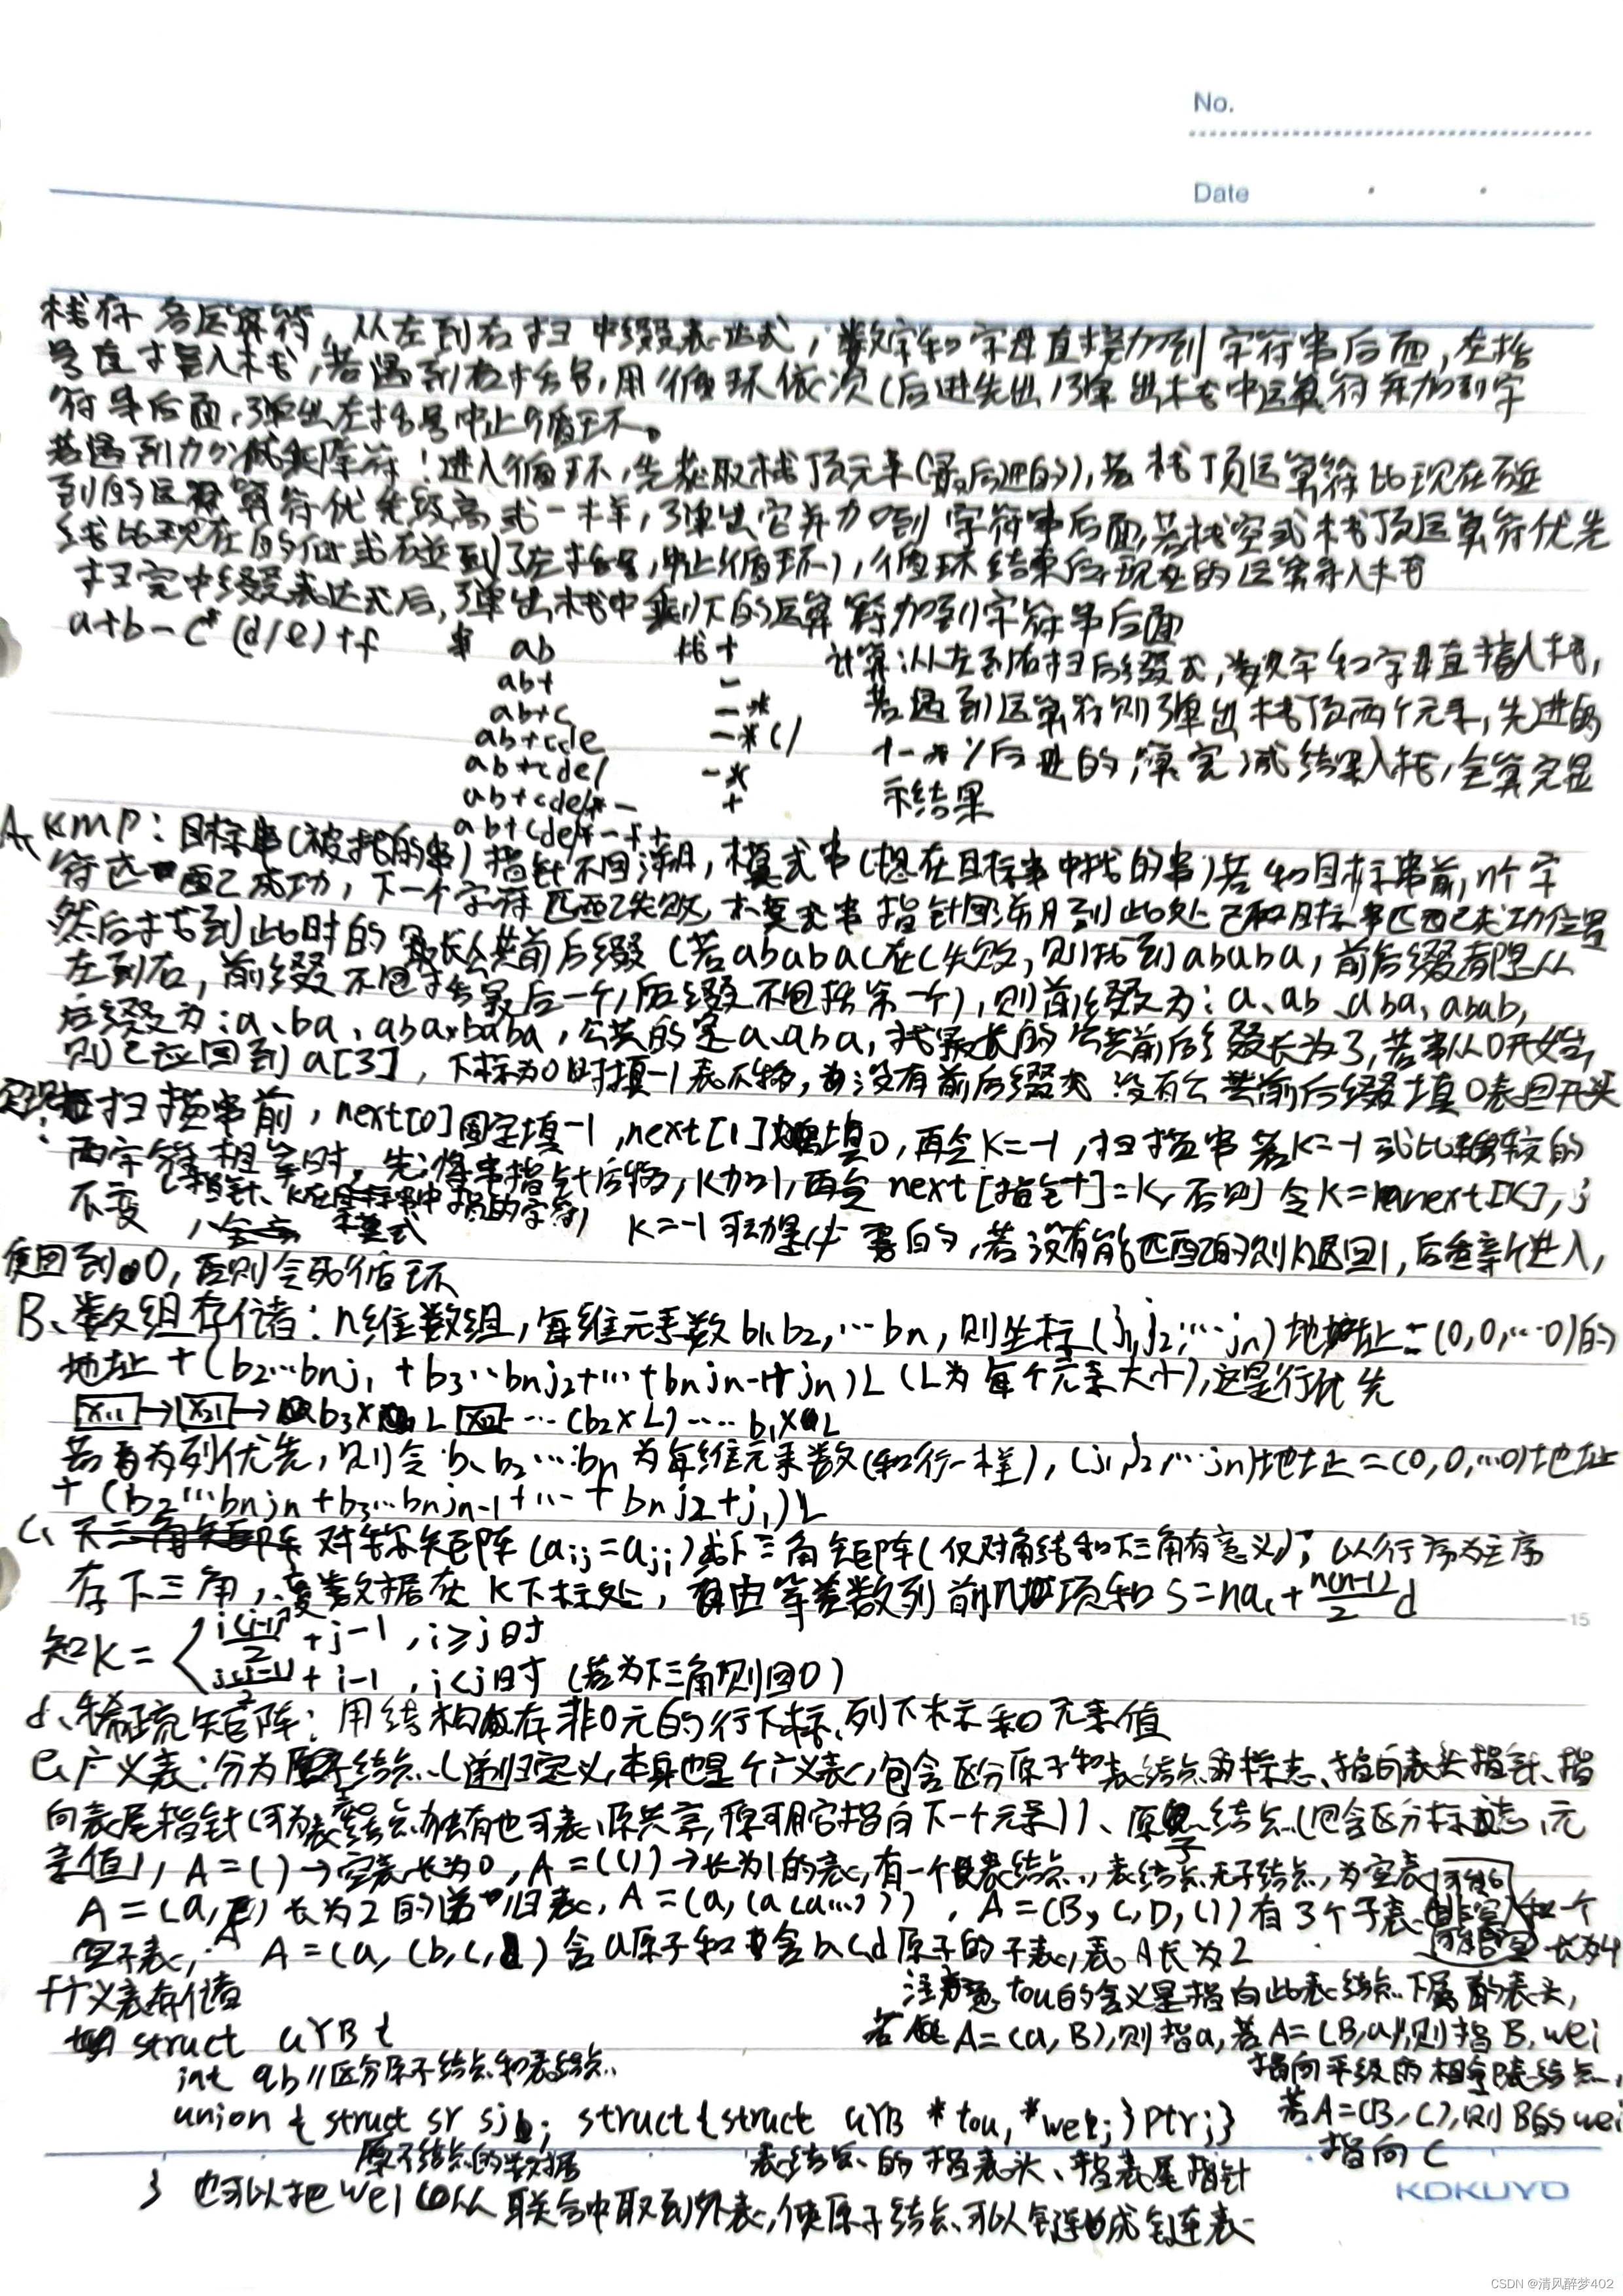 No.
Date
栈存各运算符，从左到右扫中缀表达式，数字和字母直接加到字符串后面，左括
号直接入栈，若遇到右括号，用循环依次(后进先出)弹出栈中运算符并加到字
符串后面，弹出左括号中止循环。
若遇到加减乘除符！进入循环，先获取栈顶元素(最后进的)，若栈顶运算符比现在碰
到的运算符优先级高或一样，弹出它并加到字符串后面，若栈空或栈顶运算符优先
级比现在的低或碰到了左括号，中止循环)，循环结束后现在的运算符入栈
扫完中缀表达式后，弹出栈中剩下的运算符加到字符串后面
a+b-c*(d/e)+f 串 ab 栈 + 计算：从左到右扫后缀式，数字和字母直接入栈，
ab+ - 若遇到运算符则弹出栈顶两个元素，先进的
ab+c -*
ab+cde -*(/ +-*/后进的，算完成结果入栈，全算完显
ab+cde/ -* 示结果
ab+cde/*- +
ab+cde/*-f+
A、KMP：目标串(被找的串)指针不回溯，模式串(想在目标串中找的串)若和目标串前n个字
符匹配成功，下一个字符匹配失败，模式串指针回溯到此处已和目标串匹配成功位置
然后找到此时的最长公共前后缀(若ababac在c失败，则找到ababa，前后缀都是从
左到右，前缀不包括最后一个，后缀不包括第一个)，则前缀为：a、ab、aba、abab，
后缀为：a、ba、aba、baba，公共的是a、aba，找最长的公共前后缀长为3，若串从0开始，
则它应回到a[3]，下标为0时填-1表不移，当没有前后缀或没有公共前后缀填0表回开头
扫描串前，next[0]固定填-1，next[1]填0，再令k=-1，扫描串若k=-1或比较的
两字符相等时，先将串指针后移，k加1，再令next[指针]=k，否则令k=next[k]，j
不变 (指针、k在模式串中指的字符) k=-1 是必要的，若没有能匹配的则k退回1，后重新进入，
使回到0，否则会死循环
B、数组存储：n维数组，每维元素数b1,b2,…bn，则坐标(j1,j2,…jn)地址=(0,0,…0)的
地址+(b2…bnj1+b3…bnj2+…+bnjn-1+jn)L(L为每个元素大小)，这是行优先
X11→X21→ b3×L … (b2×L)…. b1×L
若为列优先，则令b1b2…bn为每维元素数(和行一样)，(j1,j2,…jn)地址=(0,0,…0)地址
+(b2…bnjn+b3…bnjn-1+…+bnj2+j1)L
C、对称矩阵(aij=aji)或下三角矩阵(仅对角线和下三角有意义)；以行序为主序
存下三角，数据在k下标处，由等差数列前n项和S=na1+n(n-1)/2 d
知k={i(i-1)/2+j-1，i≥j时
j(j-1)/2+i-1，i<j时(若为下三角则回0)
d、稀疏矩阵：用结构体存非0元的行下标、列下标和元素值
e、广义表：分为表结点(递归定义，本身也是个广义表，包含区分原子和表结点的标志、指向表头指针、指
向表尾指针(可为表结点独有也可表、原共享，原可用它指向下一个元素))、原子结点(包含区分标志、元
素值)，A=()→空表长为0，A=(())→长为1的表，有一个表结点，表结点无子结点，为空表
A=(a,A)长为2的递归表，A=(a,(a(a…)))，A=(B,C,D,())有3个子表和一个
空子表， A=(a,(b,c,d))含a原子和含b,c,d原子的子表，表A长为2 长为4
f广义表存储
注意tou的含义是指向此表结点下属的表头，
struct GYB{
若A=(a,B)，则指a，若A=(B,a)，则指B，wei
int qb//区分原子结点和表结点
指向平级的相邻表结点，
union{struct sr sj; struct{struct GYB *tou,*wei;}ptr;}
若A=(B,C)，则B的wei
指向C
原子结点的数据 表结点的指表头、指表尾指针
} 也可以把wei从联合中取到外表，使原子结点可以链成链表
15
KOKUYO
CSDN @清风醉梦402